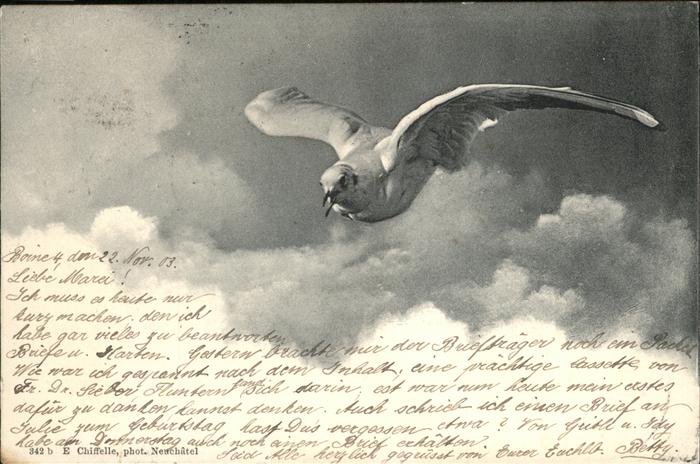 Boine 4, den 22. Nov. 03.
Liebe Marei!
Ich muss es heute nur
kurz machen, den ich
habe gar vieles zu beantworten
Briefe u. Karten. Gestern brachte mir der Briefträger noch ein
Wie war ich gespannt nach dem Inhalt, eine prächtige Cassette, von
Fr. Dr. Sieber Fluntern fand sich darin, est war nun heute mein erstes
dafür zu danken kannst denken. Auch schrieb ich einen Brief an
Julie zum Geburtstag hast Du's vergessen etwa? Von Gritli u. Idy
habe am Donnerstag auch noch einen Brief erhalten.
Seid Alle herzlich gegrüsst von Eurer Euchlb. Betty.
342 b E Chiffelle, phot. Neuchâtel